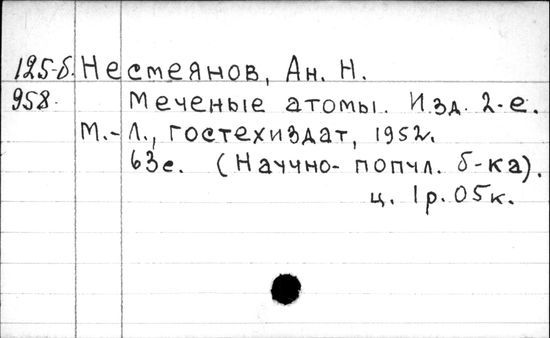 125-б. Несмеянов, Ан. Н.
958. Меченые атомы. Изд. 2-е.
М.-Л., гостехиздат, 1952.
63с. (Научно-попул. б-ка).
ц. 1р.05к.